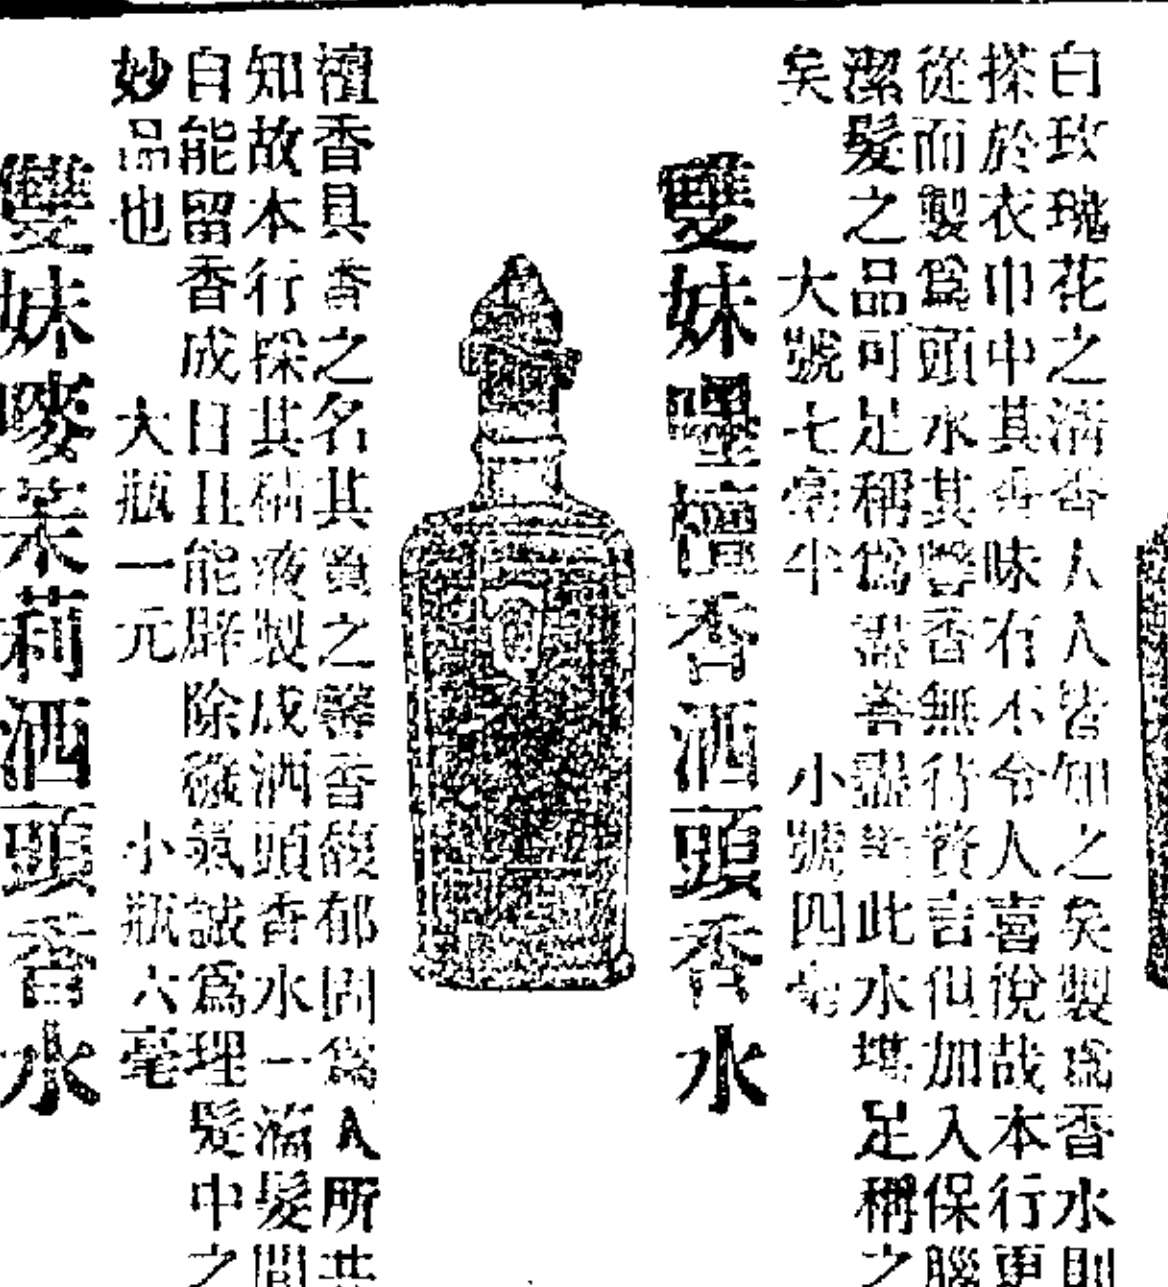 白玫瑰花之清香人人皆知之矣製為香水則
搽於衣巾中其香味有不令人喜悅哉本行更
從而製爲頭水其馨香無待贅言但加入保腦
潔髮之品可足稱爲盡善盡此水堪足稱之
矣 大號七毫半 小號四毫
雙妹嘿檀香洒頭香水
檀香具香之名其質之馨香馥郁固為人所共
知故本行採其精液製成洒頭香水一滴髮間
自能留香成日且能辟除穢氣誠爲理髮中之
妙品也 大瓶一元 小瓶六毫
雙妹嘜茉莉洒頭香水